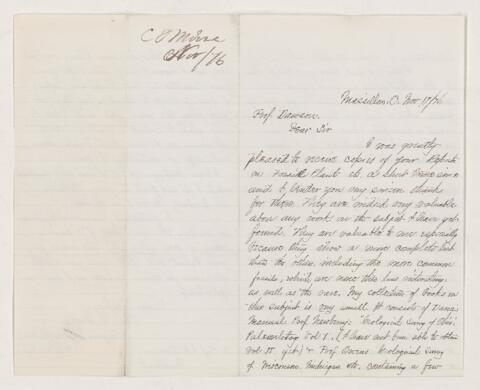 Nov/76
Massillon, O. Nov. 17/76
Prof Dawson,
Dear Sir
I was greatly
pleased to receive copies of your Reports
on Fossil Plants etc. a short time since
and I tender you my sincere thanks
for them. They are indeed very valuable
above any work on the subject I have yet
found. They are valuable to me especially
because they show a more complete list
than the others, including the more common
fossils, which are more or less interesting
as well as the rare. My collection of Books on
this subject is very small. It consists of Dana's
Manual Prof. Newberry's Geological Survey of Ohio.
Palaeontology Vol I., (I have not been able to obtain
Vol II yet) & Prof Owens Geological Survey
of Wisconsin, Michigan etc. containing a few